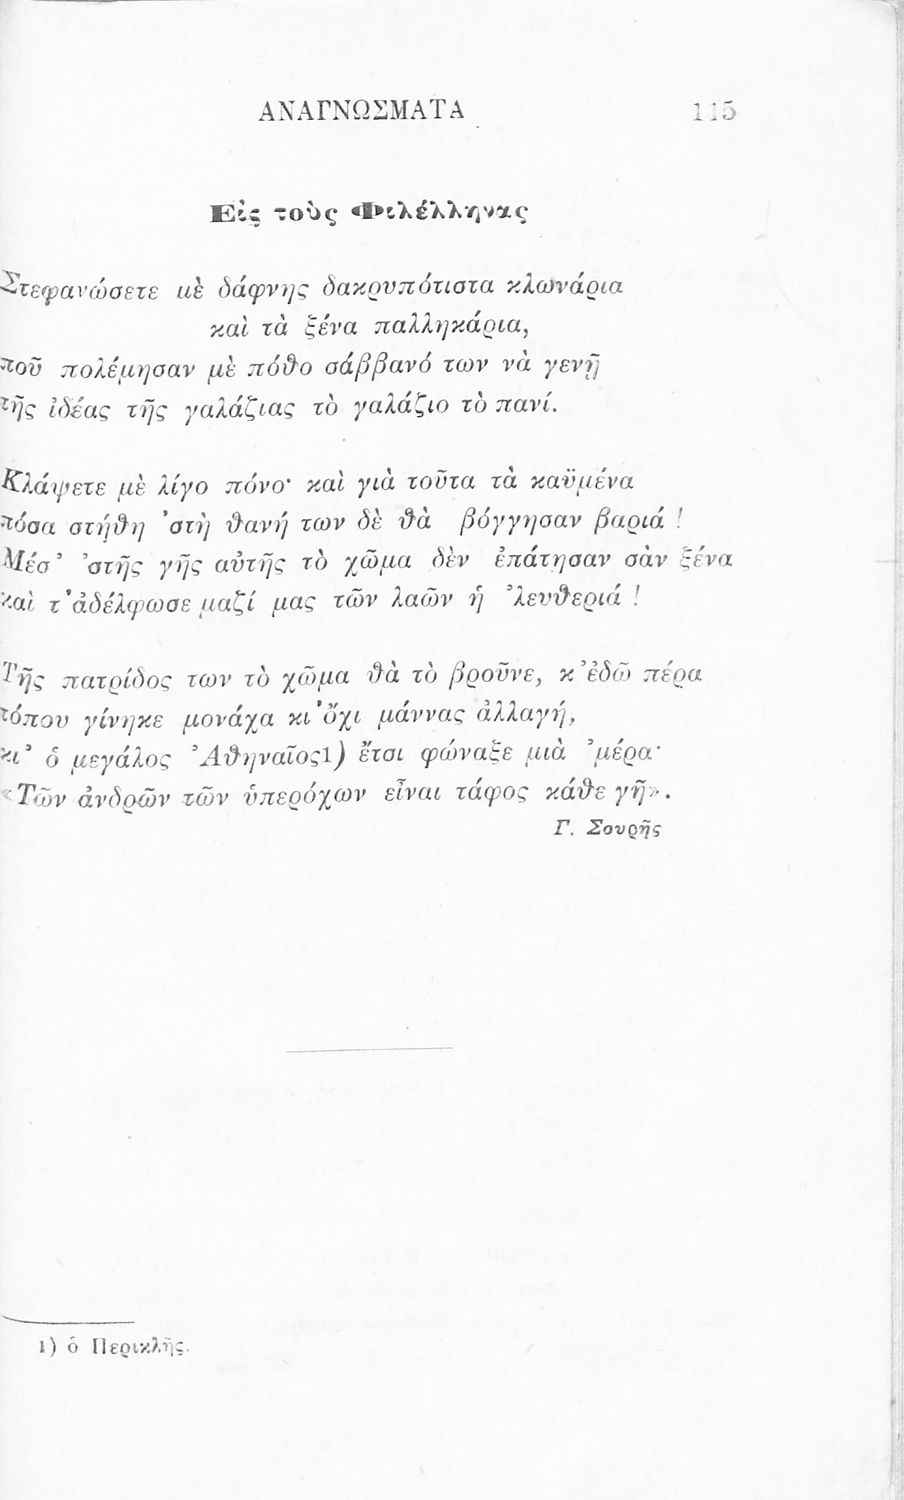 ΑΝΑΓΝΩΣΜΑΤΑ 115
Εἰς τοὺς Φιλέλληνας
Στεφανώσετε μὲ δάφνης δακρυπότιστα κλωνάρια
καὶ τὰ ξένα παλληκάρια,
ποῦ πολέμησαν μὲ πόθο σάββανό των νὰ γενῇ
τῆς ἰδέας τῆς γαλάζιας τὸ γαλάζιο τὸ πανί.
Κλάψετε μὲ λίγο πόνο· καὶ γιὰ τοῦτα τὰ καϋμένα
πόσα στήθη ᾿στὴ θανή των δὲ θὰ βόγγησαν βαριά !
Μέσ᾿ ᾿στῆς γῆς αὐτῆς τὸ χῶμα δὲν ἐπάτησαν σὰν ξένα
καὶ τ᾿ἀδέλφωσε μαζί μας τῶν λαῶν ἡ ᾿λευθεριά !
Τῆς πατρίδος των τὸ χῶμα θὰ τὸ βροῦνε, κ᾿ἐδῶ πέρα
τόπου γίνηκε μονάχα κι᾿ὄχι μάννας ἀλλαγή,
κι᾿ ὁ μεγάλος ᾿Αθηναῖος1) ἔτσι φώναξε μιὰ ᾿μέρα·
«Τῶν ἀνδρῶν τῶν ὑπερόχων εἶναι τάφος κάθε γῆ».
Γ. Σουρῆς
1) ὁ Περικλῆς.